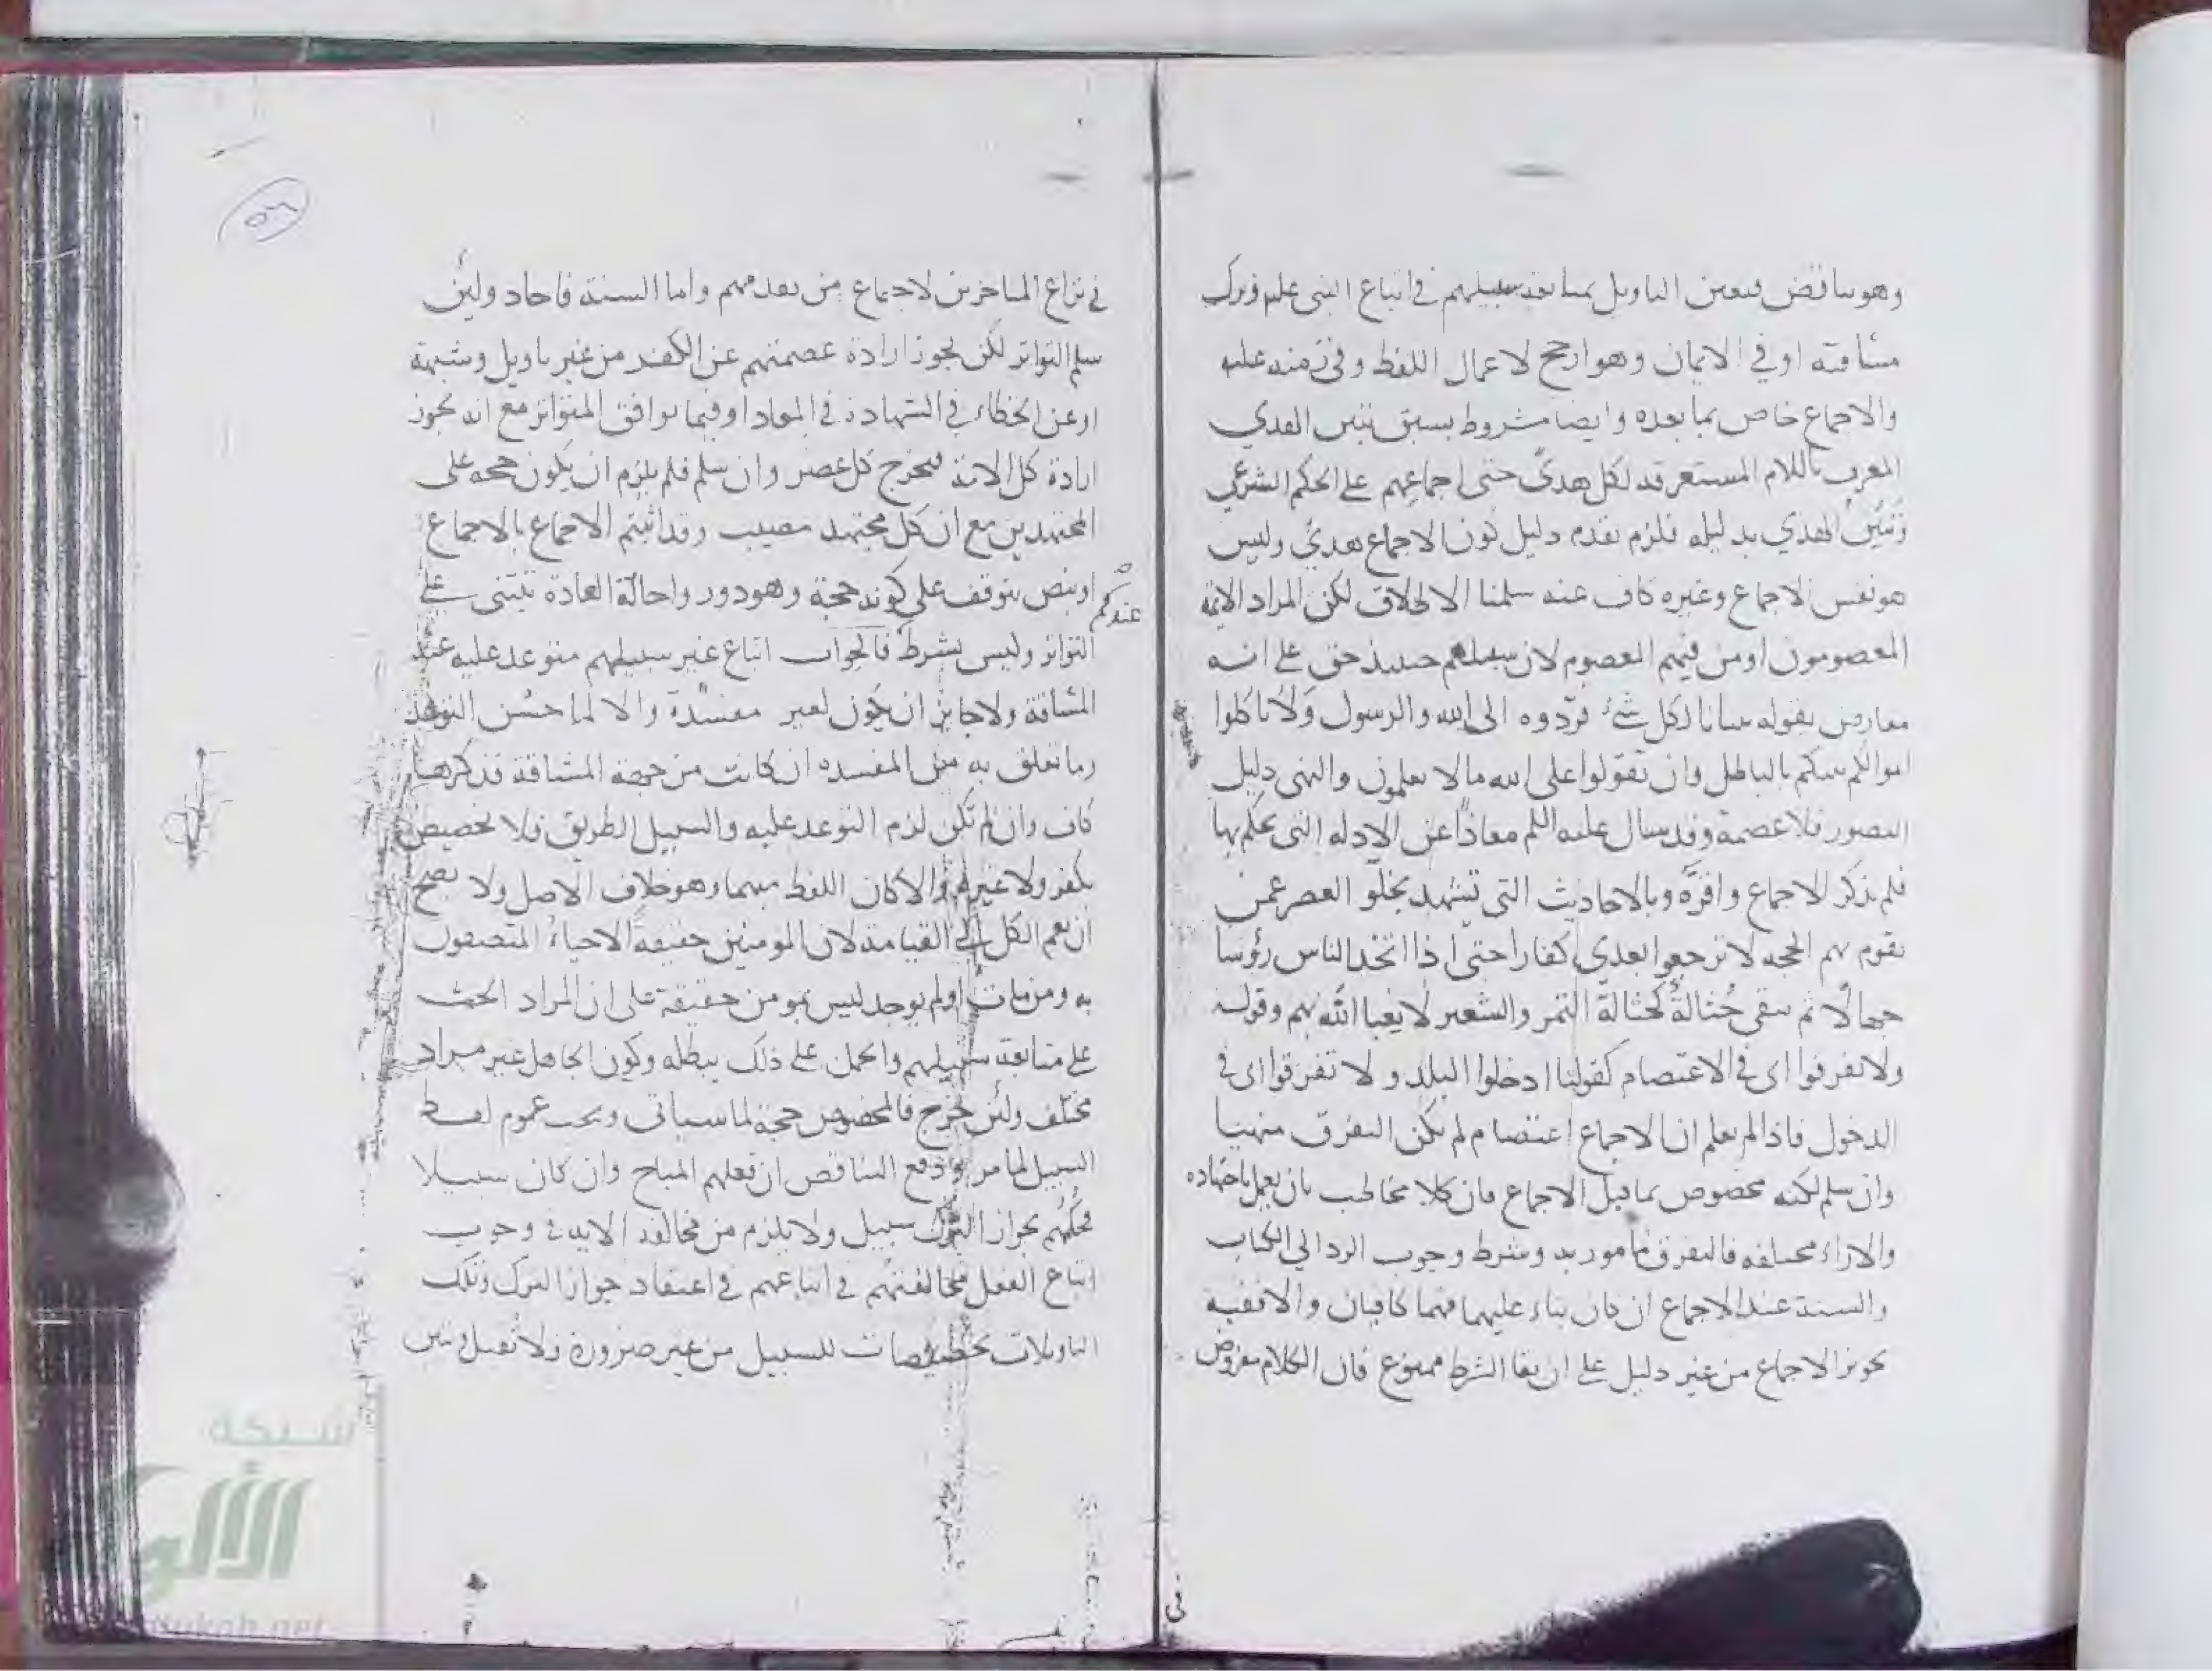 وهو يناقض فيعين التاويل بمتابعة سبيلهم في اتباع النبي علم وترك
مشاقته او في الايمان وهو ارجح لاعمال اللفظ وفي زمنه عليه
والاجماع خاص بما بعده وايضا مشروط بسبق تبين الهدي
المعرف باللام المستغرقه لكل هدىً حتى اجماعهم على الحكم الشرعي
وتبيّنُ الهدي بدليله فلزم تقدم دليل كون الاجماع هديً وليس
هو نفس الاجماع وغيره كاف عنه سلمنا الاطلاق لكن المراد الائمة
المعصومون او من فيهم المعصوم لان سبيلهم حينيذ حق على انه
معارض بقوله تبيانا لكل شئ فردّوه الى الله والرسول ولا تاكلوا
اموالكم بينكم بالباطل وان تقولوا على الله ما لا تعلمون والنهي دليل
التصور فلا عصمة وقد سال عليه السلم معاذًا عن الادله التي يحكم بها
فلم يذكر الاجماع واقرّه وبالاحاديث التي تشهد بخلوّ العصر عمن
تقوم بهم الحجه لا ترجعوا بعدي كفارا حتى اذا اتخذ الناس رؤسا
جهالًا ثم تبقى حُثالةٌ كحثالة التمر والشعير لا يعبا الله بهم وقوله
ولا تفرقوا اى في الاعتصام كقولنا ادخلوا البلد ولا تفرقوا اى في
الدخول فاذا لم يعلم ان الاجماع اعتصام لم يكن التفرق منهيا
وان سلم لكنه مخصوص بما قبل الاجماع فان كلا مخاطب بان يعمل باجتهاده
والاراء مختلفه فالتفرق مامور به وشرط وجوب الرد الى الكتاب
والسنة عند الاجماع ان كان بناء عليهما فهما كافيان والا ففيه
تجويز الاجماع من غير دليل على ان بقا الشرط ممنوع فان الكلام مفروض
في
٥٦
في نزاع المتاخرين لاجماع من تقدمهم واما السنة فاحاد ولئن
سلم التواتر لكن يجوز ارادة عصمتهم عن الكفر من غير تاويل وشبهة
او عن الخطاء في الشهادة في المعاد او فيما يوافق المتواتر مع انه يجوز
ارادة كل الامة فيخرج كل عصر وان سلم فلم يلزم ان يكون حجه على
المجتهدين مع ان كل مجتهد مصيب وقد اثبتم الاجماع بالاجماع
او بنص يتوقف على كونه حجة وهو دور واحالة العادة تبتنى على
عندكم
التواتر وليس بشرط فالجواب اتباع غير سبيلهم متوعد عليه عند
المشاقة ولا جايز ان يكون لغير مفسدة والا لما حسُن التوعد
وما تعلق به من المفسده ان كانت من جهة المشاقة فذكرها
كاف وان لم تكن لزم التوعد عليه والسبيل الطريق فلا تخصيص
بكفر ولا غيره والا كان اللفظ مبهما وهو خلاف الاصل ولا يصح
ان يعم الكل الى القيامة لان المومنين حقيقة الاحياء المتصفون
به ومن مات او لم يوجد ليس بمومن حقيقة على ان المراد الحث
على متابعة سبيلهم والحمل على ذلك يبطله وكون الجاهل غير مراد
مختلف ولئن خرج فالمخصوص حجة لما سياتى ويجب عموم لفظ
السبيل لما مر ودفع التناقض ان فعلهم المباح وان كان سبيلا
فحكمُهم بجواز الترك سبيل ولا يلزم من مخالفة الاية في وجوب
اتباع الفعل مخالفتهم في اتباعهم في اعتقاد جواز الترك وتلك
التاويلات تخصيصات للسبيل من غير ضرورة فلا تقبل وتبين
شبكة
الألوكة